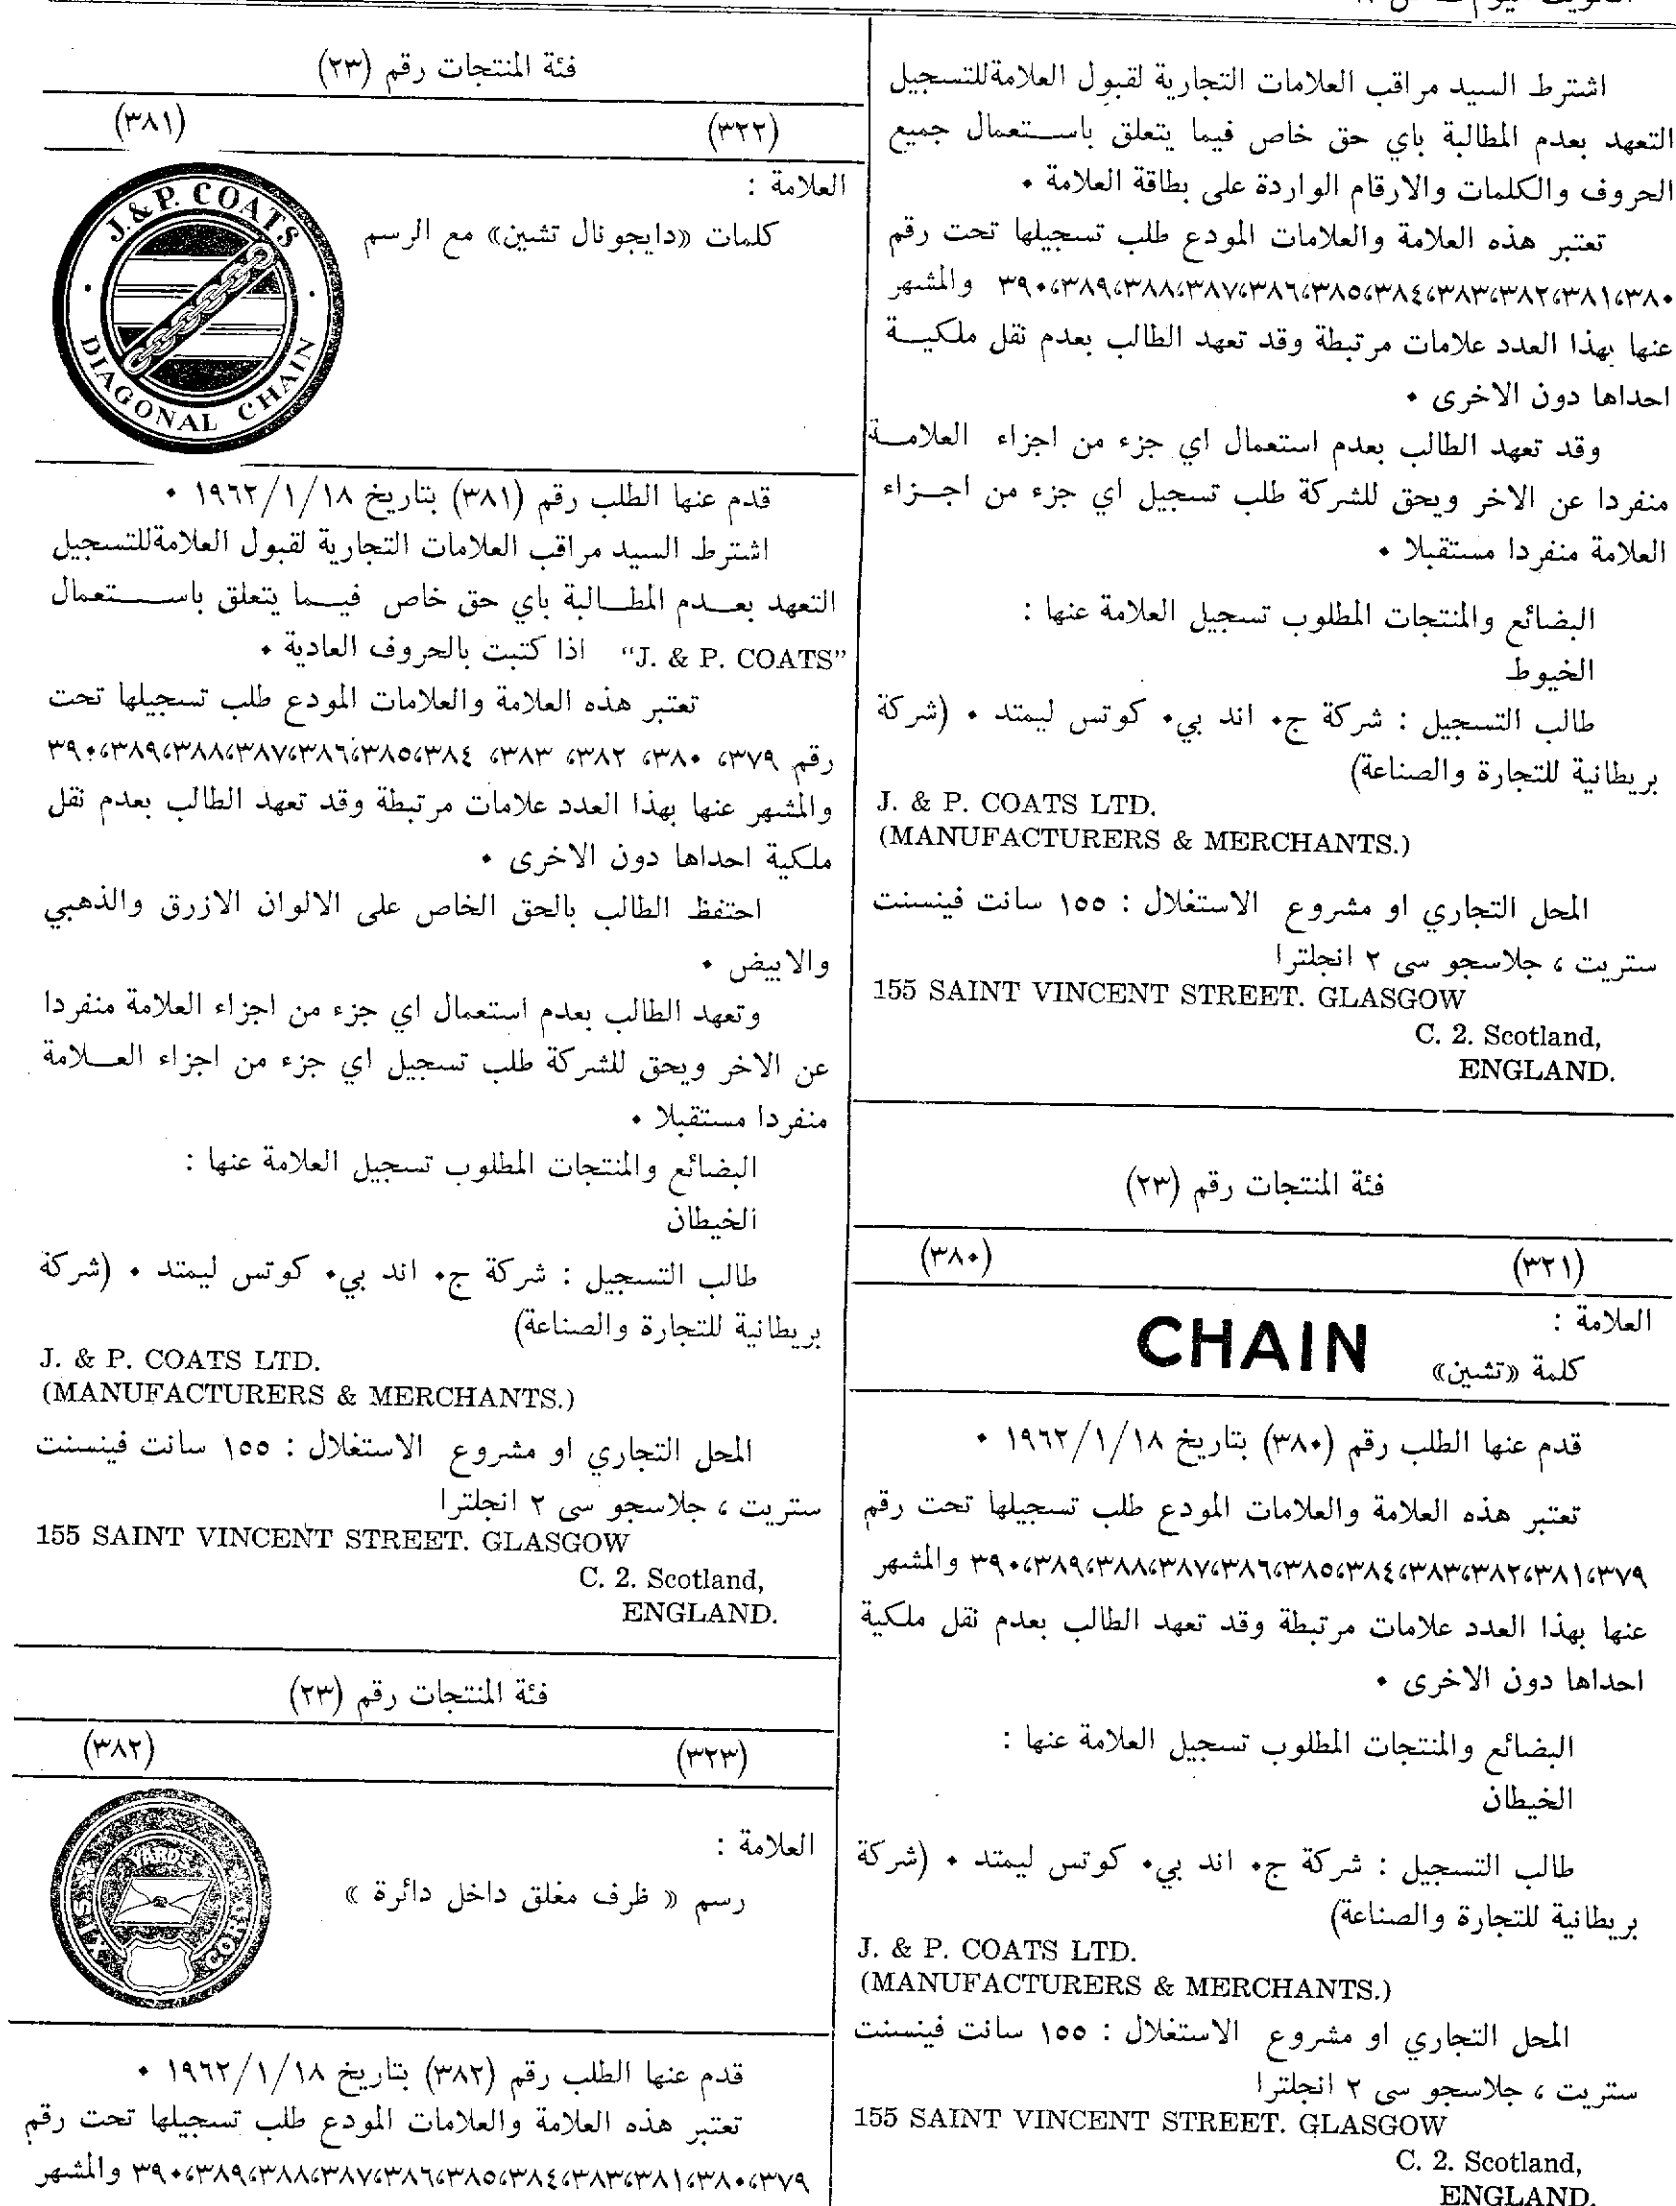 اشترط السيد مراقب العلامات التجارية لقبول العلامةللتسجيل
التعهد بعدم المطالبة باي حق خاص فيما يتعلق باستعمال جميع
الحروف والكلمات والارقام الواردة على بطاقة العلامة .
تعتبر هذه العلامة والعلامات المودع طلب تسجيلها تحت رقم
٣٨٠،٣٨١،٣٨٢،٣٨٣،٣٨٤،٣٨٥،٣٨٦،٣٨٧،٣٨٨،٣٨٩،٣٩٠ والمشهر
عنها بهذا العدد علامات مرتبطة وقد تعهد الطالب بعدم نقل ملكية
احداها دون الاخرى .
وقد تعهد الطالب بعدم استعمال اي جزء من اجزاء العلامة
منفردا عن الاخر ويحق للشركة طلب تسجيل اي جزء من اجزاء
العلامة منفردا مستقبلا .
البضائع والمنتجات المطلوب تسجيل العلامة عنها :
الخيوط
طالب التسجيل : شركة ج. اند بي. كوتس ليمتد . (شركة
بريطانية للتجارة والصناعة)
J. & P. COATS LTD.
(MANUFACTURERS & MERCHANTS.)
المحل التجاري او مشروع الاستغلال : ١٥٥ سانت فينسنت
ستريت ، جلاسجو سى ٢ انجلترا
155 SAINT VINCENT STREET. GLASGOW
C. 2. Scotland,
ENGLAND.
فئة المنتجات رقم (٢٣)
(٣٢١) (٣٨٠)
العلامة :
كلمة «تشين» CHAIN
قدم عنها الطلب رقم (٣٨٠) بتاريخ ١٩٦٢/١/١٨ .
تعتبر هذه العلامة والعلامات المودع طلب تسجيلها تحت رقم
٣٧٩،٣٨١،٣٨٢،٣٨٣،٣٨٤،٣٨٥،٣٨٦،٣٨٧،٣٨٨،٣٨٩،٣٩٠ والمشهر
عنها بهذا العدد علامات مرتبطة وقد تعهد الطالب بعدم نقل ملكية
احداها دون الاخرى .
البضائع والمنتجات المطلوب تسجيل العلامة عنها :
الخيطان
طالب التسجيل : شركة ج. اند بي. كوتس ليمتد . (شركة
بريطانية للتجارة والصناعة)
J. & P. COATS LTD.
(MANUFACTURERS & MERCHANTS.)
المحل التجاري او مشروع الاستغلال : ١٥٥ سانت فينسنت
ستريت ، جلاسجو سى ٢ انجلترا
155 SAINT VINCENT STREET. GLASGOW
C. 2. Scotland,
ENGLAND.
فئة المنتجات رقم (٢٣)
(٣٢٢) (٣٨١)
العلامة :
كلمات «دايجونال تشين» مع الرسم
J. & P. COATS
DIAGONAL CHAIN
قدم عنها الطلب رقم (٣٨١) بتاريخ ١٩٦٢/١/١٨ .
اشترط السيد مراقب العلامات التجارية لقبول العلامةللتسجيل
التعهد بعدم المطالبة باي حق خاص فيما يتعلق باستعمال
"J. & P. COATS" اذا كتبت بالحروف العادية .
تعتبر هذه العلامة والعلامات المودع طلب تسجيلها تحت
رقم ٣٧٩، ٣٨٠، ٣٨٢، ٣٨٣، ٣٨٤،٣٨٥،٣٨٦،٣٨٧،٣٨٨،٣٨٩،٣٩٠
والمشهر عنها بهذا العدد علامات مرتبطة وقد تعهد الطالب بعدم نقل
ملكية احداها دون الاخرى .
احتفظ الطالب بالحق الخاص على الالوان الازرق والذهبي
والابيض .
وتعهد الطالب بعدم استعمال اي جزء من اجزاء العلامة منفردا
عن الاخر ويحق للشركة طلب تسجيل اي جزء من اجزاء العلامة
منفردا مستقبلا .
البضائع والمنتجات المطلوب تسجيل العلامة عنها :
الخيطان
طالب التسجيل : شركة ج. اند بي. كوتس ليمتد . (شركة
بريطانية للتجارة والصناعة)
J. & P. COATS LTD.
(MANUFACTURERS & MERCHANTS.)
المحل التجاري او مشروع الاستغلال : ١٥٥ سانت فينسنت
ستريت ، جلاسجو سى ٢ انجلترا
155 SAINT VINCENT STREET. GLASGOW
C. 2. Scotland,
ENGLAND.
فئة المنتجات رقم (٢٣)
(٣٢٣) (٣٨٢)
العلامة :
رسم « ظرف مغلق داخل دائرة »
YARDS
SIX
قدم عنها الطلب رقم (٣٨٢) بتاريخ ١٩٦٢/١/١٨ .
تعتبر هذه العلامة والعلامات المودع طلب تسجيلها تحت رقم
٣٧٩،٣٨٠،٣٨١،٣٨٣،٣٨٤،٣٨٥،٣٨٦،٣٨٧،٣٨٨،٣٨٩،٣٩٠ والمشهر